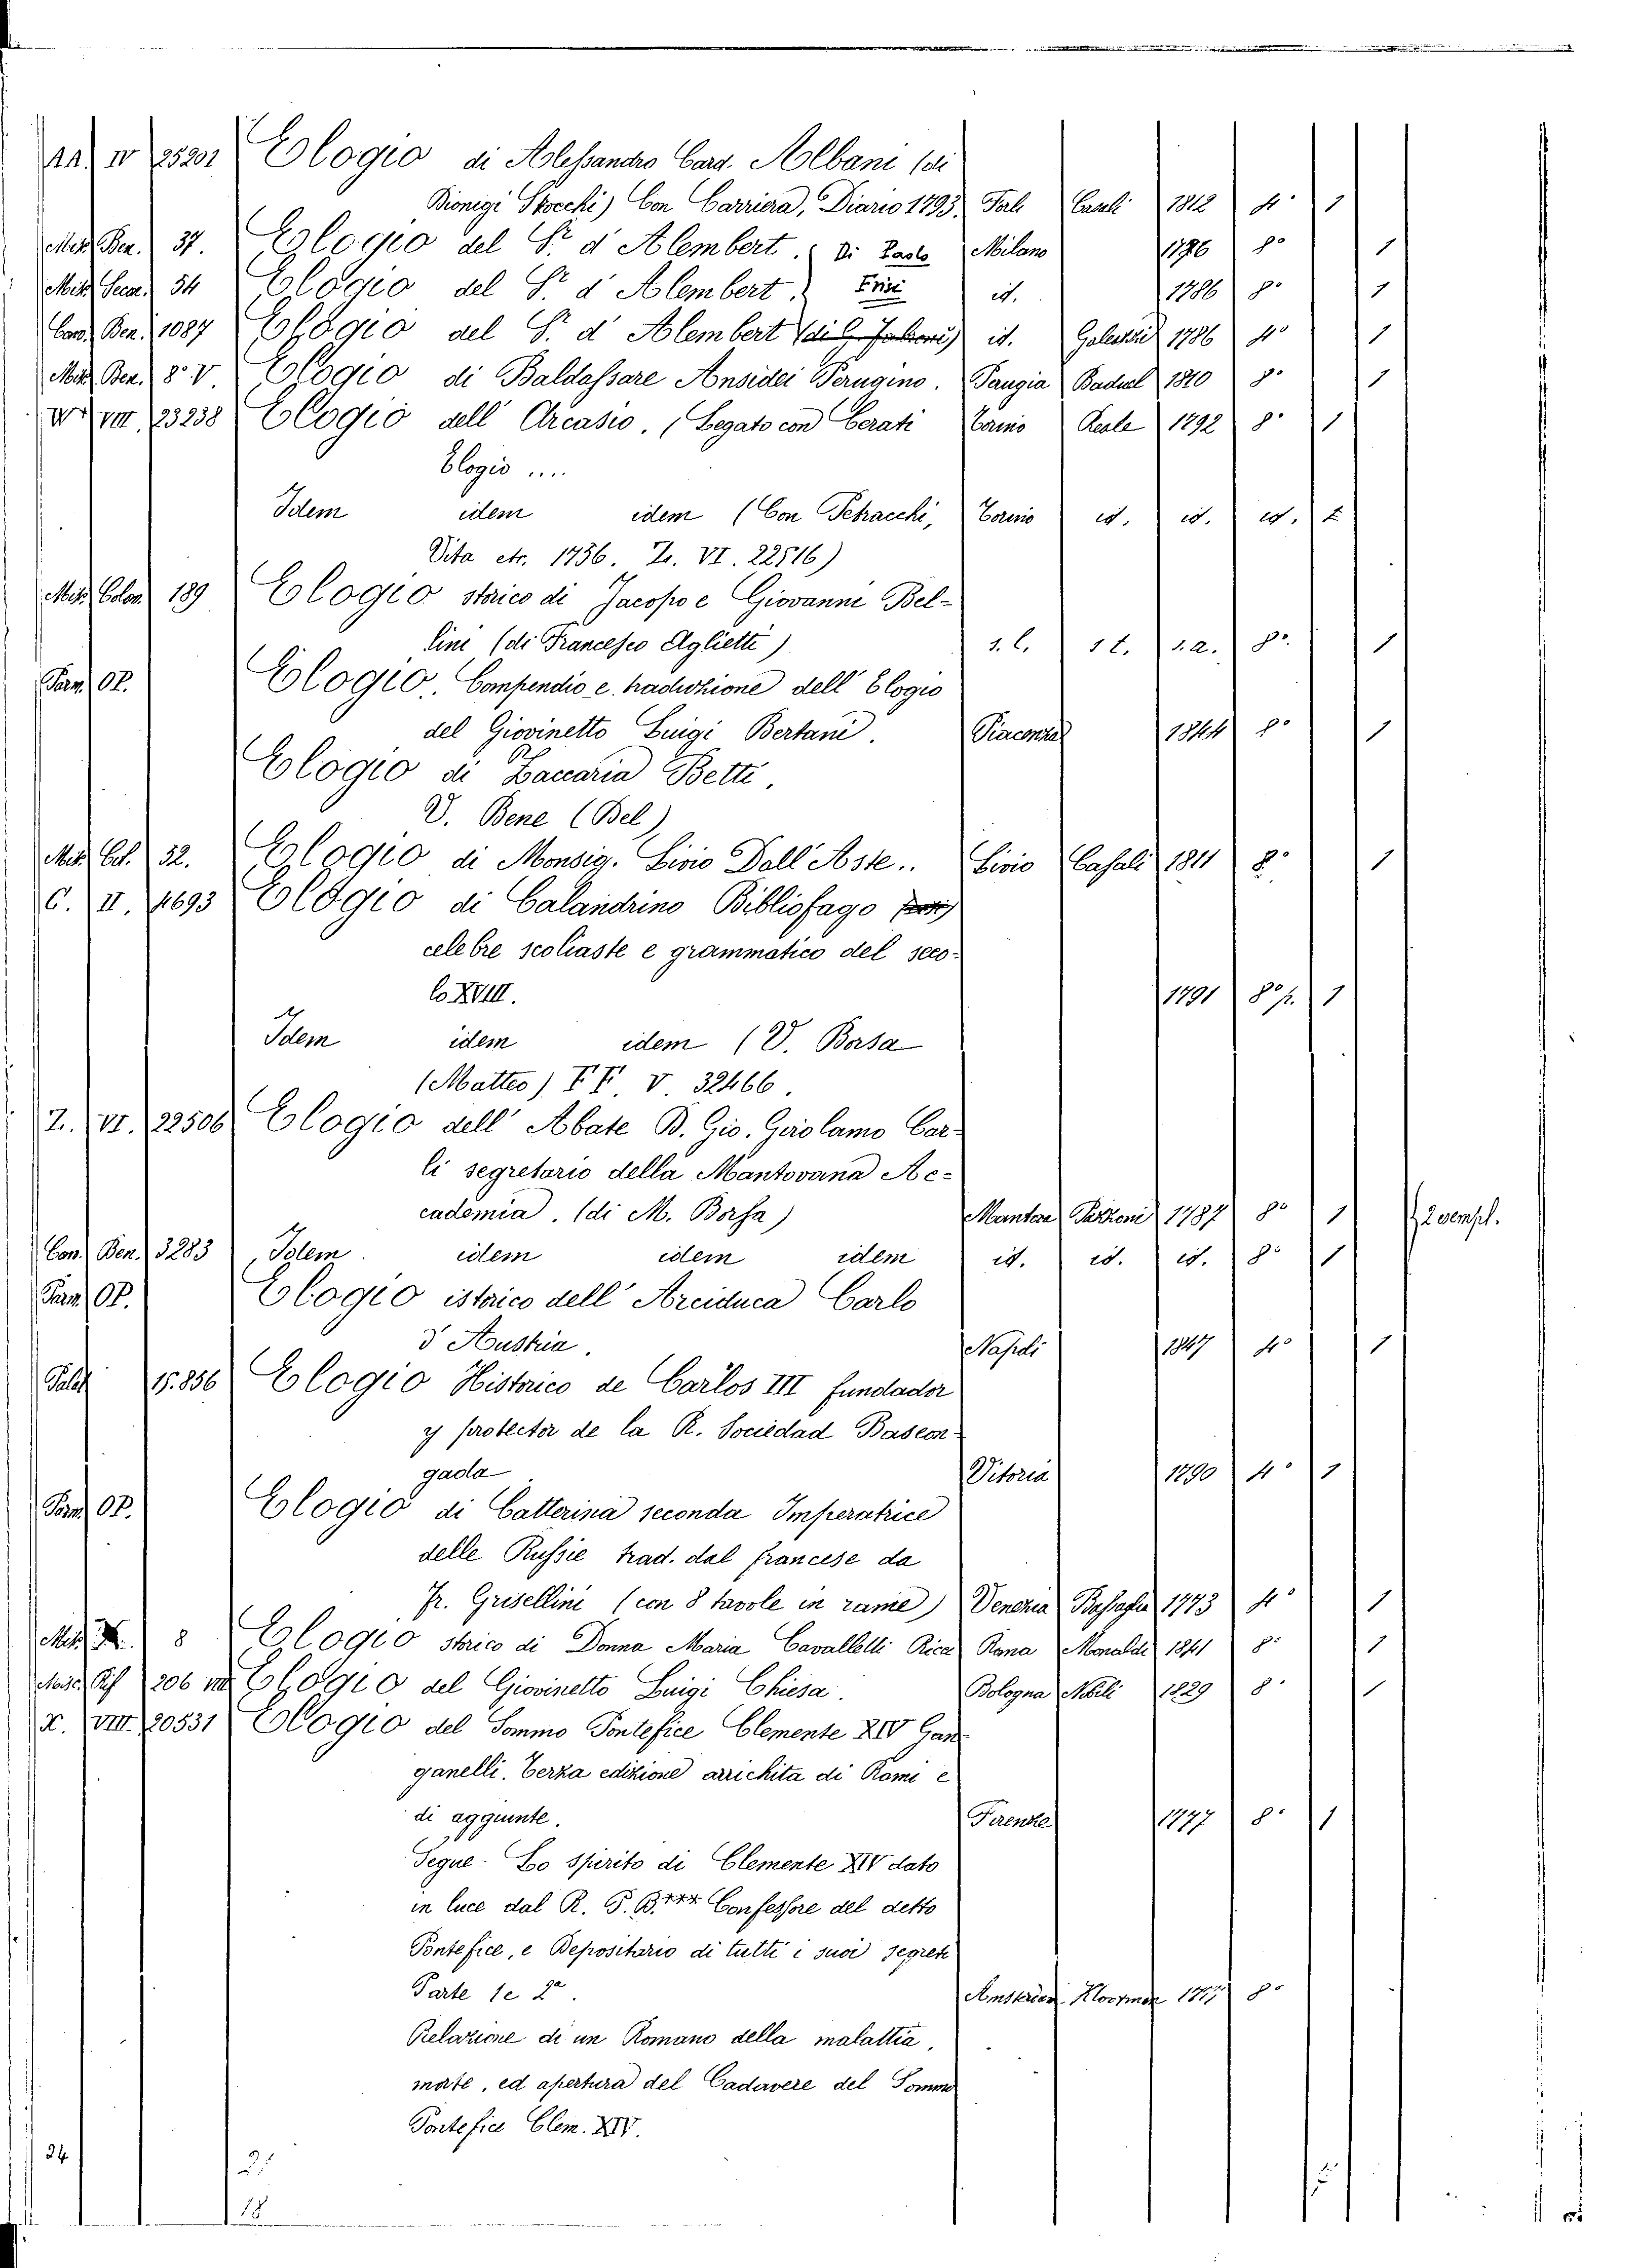 AA. IV 25201 Elogio di Alessandro Card. Albani (di
Dionigi Strocchi) Con Carriera, Diario 1793. Casali 1812 4° 1
Misc. Ben. 37. Elogio del Sr. d'Alembert. (Di Paolo Milano 1786 8° 1
34 Elogio del Sr. d'Alembert. Frisi id. 1786 8° 1
Con. Ben. 1087 Elogio del Sr. d'Alembert id. Galeazzi 1786 4° 1
Misc. Ben. 8° V Elogio di Baldassare Ansidei Perugino. Perugia Baduel 1810 8° 1
VIII 23238 Elogio dell'Arcasio. (Legato con Cerati Torino Reale 1792 8° 1
Elogio ....
Idem idem idem (Con Petracchi, Torino id. id. id. 1
Vita etc. 1756. Z. VI. 22516)
Misc. Colon. 189 Elogio storico di Jacopo e Giovanni Bel-
lini (di Francesco Aglietti) s. l. s t. s. a. 8° 1
Parm. OP. Elogio. Compendio e traduzione dell'Elogio
del Giovinetto Luigi Bertani. Piacenza 1844 8° 1
Elogio di Zaccaria Betti.
V. Bene (Del)
32. Elogio di Monsig. Livio Dall'Aste.. Livio Casali 1811 8° 1
C. II. 4693 Elogio di Calandrino Bibliofago
celebre scoliaste e grammatico del seco-
lo XVIII. 1791 8° p. 1
Idem idem idem (V. Borsa
(Matteo) FF V 32466.
Z. VI. 22506 Elogio dell'Abate B. Gio. Girolamo Car-
li segretario della Mantovana Ac-
cademia. (di M. Borsa) Mantova Pazzoni 1787 8° 1 2 esempl.
Con. Ben. 3283 Idem idem idem idem id. id. id. 8° 1
Parm. OP. Elogio istorico dell'Arciduca Carlo
d'Austria. Napoli 1847 4° 1
Palat. 15.856 Elogio Historico de Carlos III fundador
y protector de la R. Sociedad Bascon-
gada Vitoria 1790 4° 1
Parm. OP. Elogio di Catterina seconda Imperatrice
delle Russie trad. dal francese da
Fr. Grisellini (con 8 tavole in rame) Venezia Bassaglia 1773 4° 1
8 Elogio storico di Donna Maria Cavalletti Ricci Roma Monaldi 1841 8° 1
206 VIII Elogio del Giovinetto Luigi Chiesa. Bologna Nobili 1829 8° 1
X. VIII. 20531 Elogio del Sommo Pontefice Clemente XIV Gan-
ganelli. Terza edizione arrichita di Rami e
di aggiunte. Firenze 1777 8° 1
Segue: Lo Spirito di Clemente XIV dato
in luce dal R. P. B.*** Confessore del detto
Pontefice, e Depositario di tutti i suoi segreti
Parte 1 e 2a. Amsterdam 1777 8°
Relazione di un Romano della malattia,
morte, ed apertura del Cadavere del Sommo
Pontefice Clem. XIV.
24 2
18